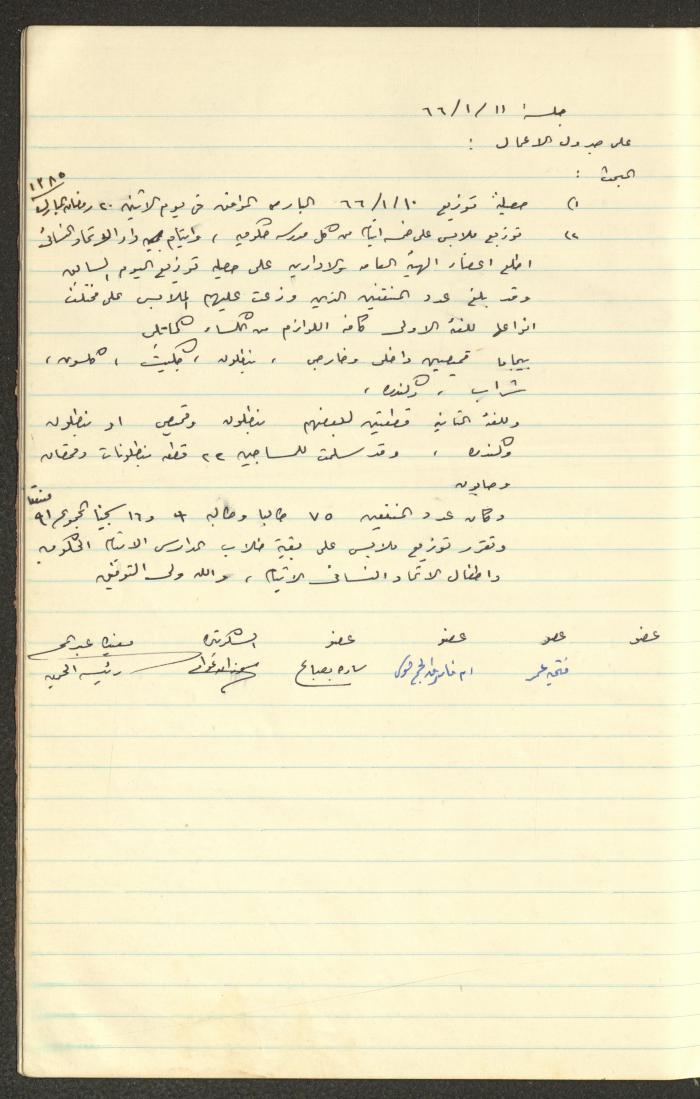 جلسة ١١ / ١ / ٦٦
على جدول الاعمال :
البحث :
١) حصيلة توزيع ٦٦/١/١٠ البارحه الموافق في يوم الاثنين ٢٠ رمضان المبارك ١٣٨٥
٢) توزيع ملابس على خمسة ايتام من كل مدرسه حكوميه ، وايتام دار الاتحاد النسائي
اطلع اعضاء الهيئة العامه والاداريه على حصيلة توزيع اليوم السابق
وقد بلغ عدد المنتفعين الذين وزعت عليهم الملابس على مختلف
انواعها للفئة الاولى كافة اللوازم من الكساء الكامل
بيجاما قميصين داخلي وخارجي ، بنطلون ، جكيت ، كلسون ،
شراب ، وكندره ،
وللفئة الثانيه قطعتين لبعضهم بنطلون وقميص او بنطلون
وكندره ، وقد سلمت للمساجين ٢٢ قطعه بنطلونات وقمصان
وصابون
وكان عدد المنتفعين ٧٥ طالبا وطالبه و ١٦ سجينا المجموع ٩١ منتفعا
وتقرر توزيع ملابس على بقية طلاب المدارس الايتام الحكوميه
واطفال الاتحاد النسائي الايتام ، والله ولي التوفيق
عضو عضو عضو عضو السكرتيره
فتحيه عمر ساره رئيسة الجمعيه